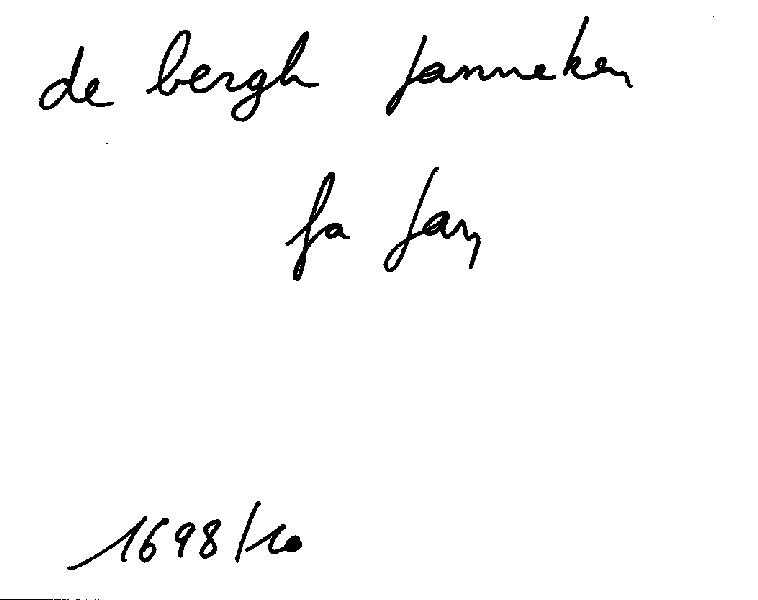 de bergh Janneken
fa Jan
1698/10